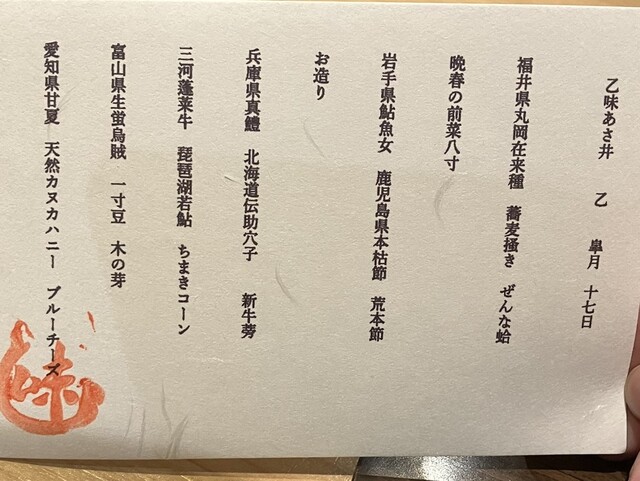 乙味あさ井　乙　皐月　十七日
福井県丸岡在来種　蕎麦掻き　ぜんな蛤
晩春の前菜八寸
岩手県鮎魚女　鹿児島県本枯節　荒本節
お造り
兵庫県真鱧　北海道伝助穴子　新牛蒡
三河蓬莱牛　琵琶湖若鮎　ちまきコーン
富山県生蛍烏賊　一寸豆　木の芽
愛知県甘夏　天然カヌカハニー　ブルーチーズ
味